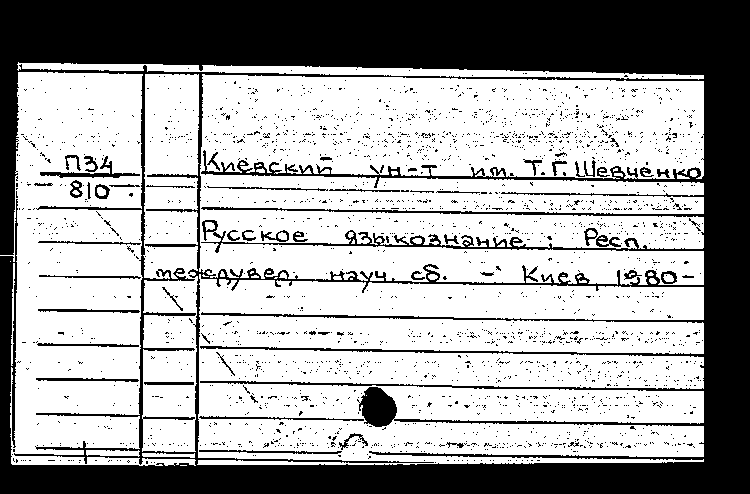 П34
810
Киевский ун-т им. Т.Г. Шевченко
Русское языкознание : Респ.
междувед. науч. сб. - Киев, 1980-